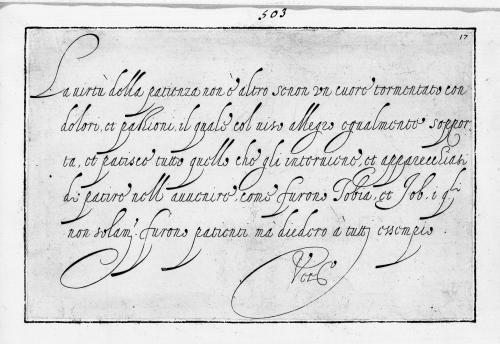 503
17
La virtù della patienza non è altro senon un cuore tormentato con
dolori, et passioni, il quale col uiso allegro egualmente soppor-
ta, et patisce tutto quello che gli interuiene, et apparecchiasi
di patire nell auuenire, come furono Tobia, et Job, i q.li
non solam. furono patienti mà diedero à tutti essempio.